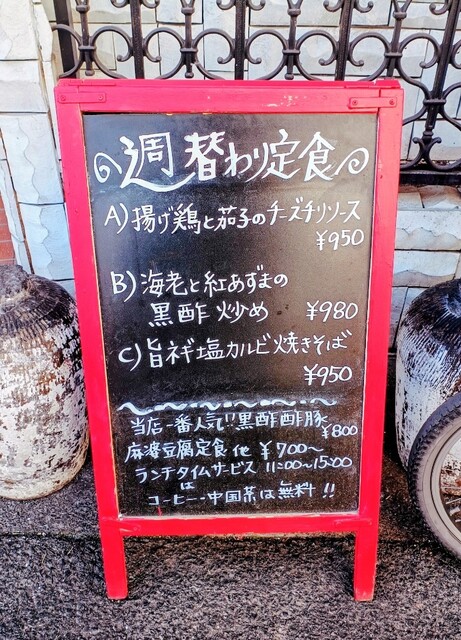 週替わり定食
A)揚げ鶏と茄子のチーズチリソース
¥950
B)海老と紅あずまの
黒酢炒め ¥980
C)旨ネギ塩カルビ焼きそば
¥950
当店一番人気!!黒酢酢豚
¥800
麻婆豆腐定食 他 ¥700〜
ランチタイムサービス 11:00〜15:00
は
コーヒー・中国茶は無料!!